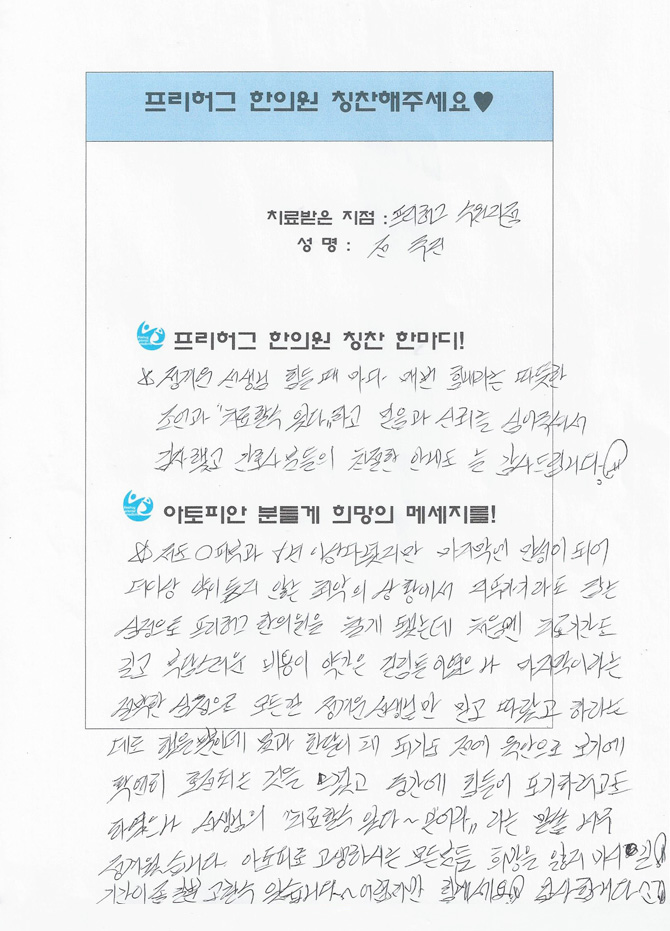 프리허그 한의원 칭찬해주세요♥
치료받은 지점 : 프리허그 수원지점
성 명 : 전
프리허그 한의원 칭찬 한마디!
선생님 힘들 때 마다 매번 힘내라는 따뜻한
조언과 "치료할수 있다"라고 믿음과 신뢰를 심어주셔서
감사했고 간호사분들의 친절한 안내도 늘 감사드립니다~
아토피안 분들께 희망의 메세지를!
저도 피부과 이상다녔지만 마지막엔 만성이 되어
더이상 약이 듣지 않는 최악의 상황에서 잡는
심정으로 프리허그 한의원을 찾게 됐는데 처음엔 치료기간도
길고 부담스러운 비용이 약간은 걸림돌이였으나 마지막이라는
절박한 심정으로 모든걸 선생님만 믿고 따랐고 하라는
데로 했을뿐인데 불과 한달이 채 되기도 전에 육안으로 보기에
확연히 호전되는 것을 느꼈고 중간에 힘들어 포기하려고도
하였으나 선생님의 "치료할수 있다~ 믿어라" 라는 말씀 너무
아토피로 고생하시는 모든분들 희망을 잃지 마시길!
기간이 고칠수 있습니다~ 어렵지만 힘내세요! 감사합니다